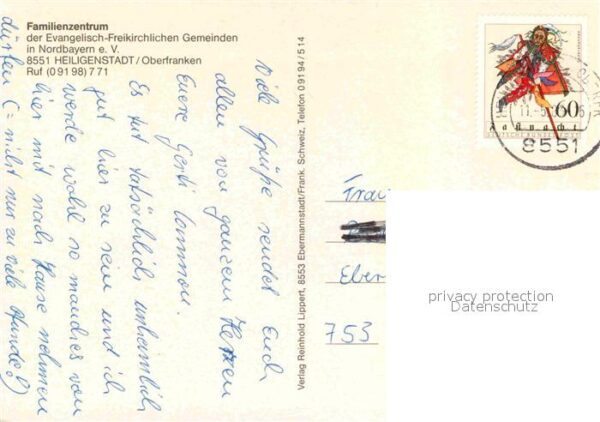 Familienzentrum
der Evangelisch-Freikirchlichen Gemeinden
in Nordbayern e. V.
8551 HEILIGENSTADT/Oberfranken
Ruf (0 91 98) 7 71
Viele Grüße sendet Euch
allen von ganzem Herzen
Euere Gerti
Es tut tatsächlich unheimlich
gut hier zu sein und ich
werde wohl so manches von
hier mit nach Hause nehmen
dürfen (= nicht nur zu viele Pfunde!)
Verlag Reinhold Lippert, 8553 Ebermannstadt/Frank. Schweiz, Telefon 0 91 94/5 14
60
Fasnacht
DEUTSCHE BUNDESPOST
11.-5.
8551
Frau
Eber
753
privacy protection
Datenschutz